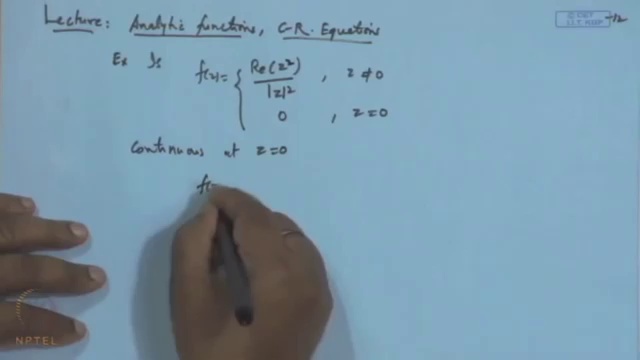 Lecture: Analytic functions, C-R. Equations
© CET
I.I.T. KGP
Ex Is f(z) = { Re(z²) / |z|² , z ≠ 0
0 , z = 0
Continuous at z = 0
f(
NPTEL